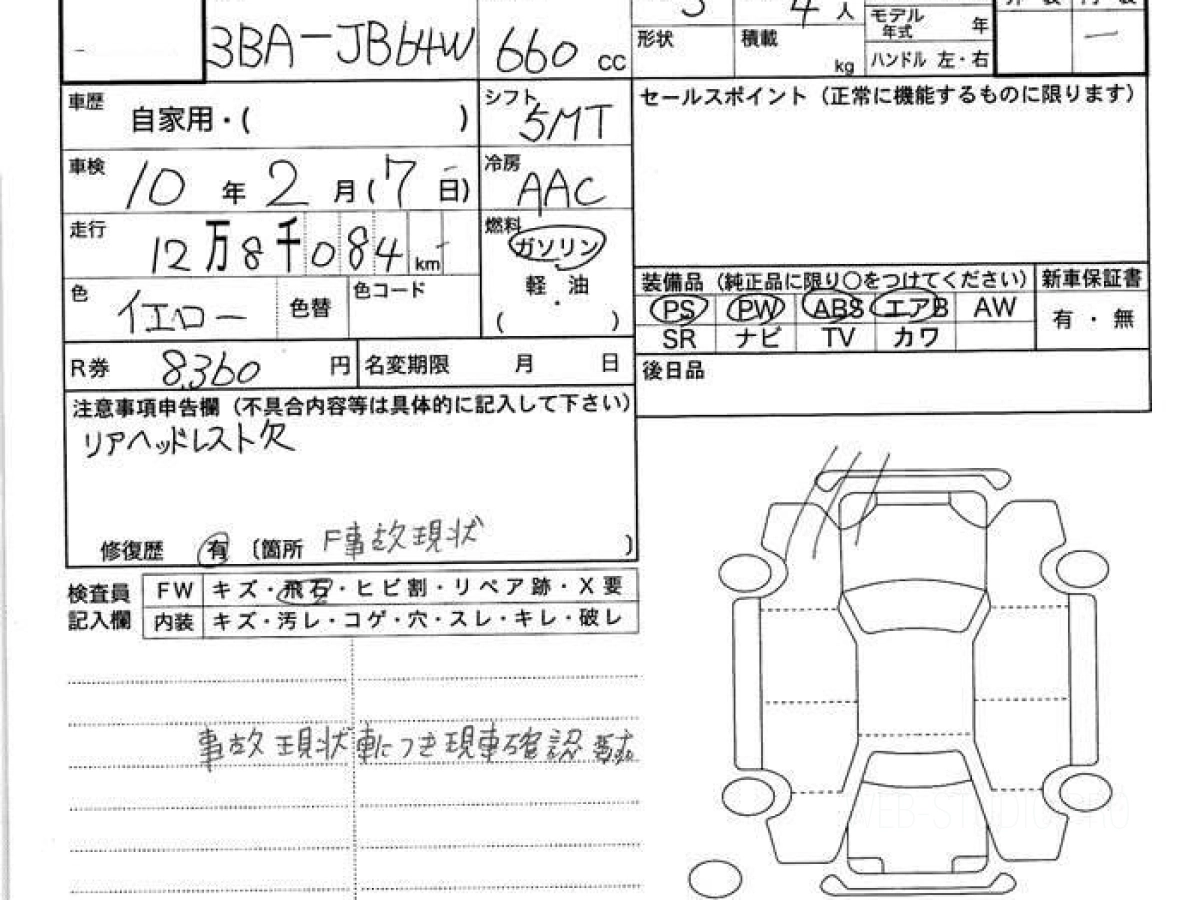 3BA-JB64W 660 cc
4 人
形状 積載 kg
モデル年式 年
ハンドル 左・右
車歴 自家用・( )
シフト 5MT
セールスポイント（正常に機能するものに限ります）
車検 10 年 2 月 (7 日)
冷房 AAC
走行 12 万 8 千 084 km
燃料 ガソリン
軽・油
( )
色 イエロー 色替 色コード
装備品（純正品に限り○をつけてください） 新車保証書
PS PW ABS エアB AW 有・無
SR ナビ TV カワ
R券 8,360 円 名変期限 月 日
後日品
注意事項申告欄（不具合内容等は具体的に記入して下さい）
リアヘッドレスト欠
修復歴 有 〔箇所 F事故現状 〕
検査員記入欄
FW キズ・飛石・ヒビ割・リペア跡・X要
内装 キズ・汚レ・コゲ・穴・スレ・キレ・破レ
事故現状車につき現車確認要す。